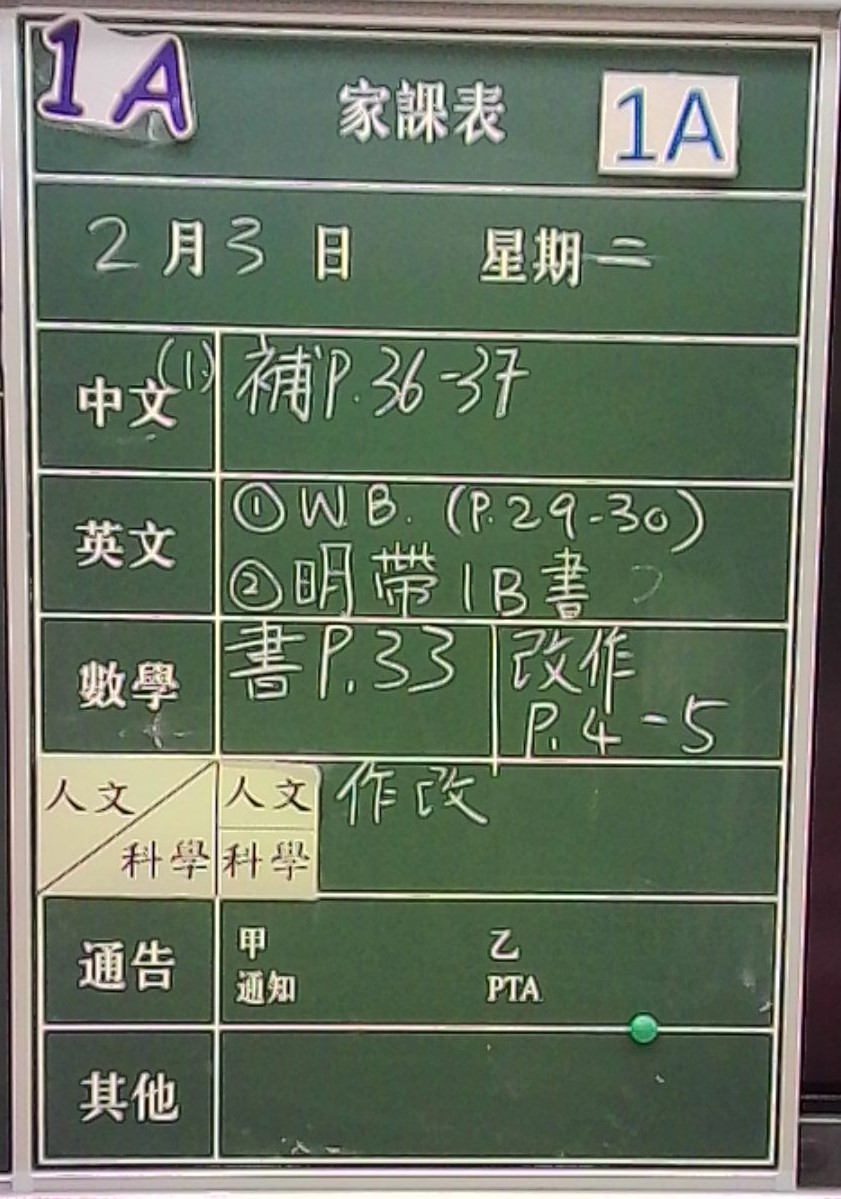 1A
家課表
1A
2月3日 星期二
中文(1) 補P.36-37
英文 ①W.B. (P.29-30)
②明帶1B書
數學 書P.33 改作
P.4-5
人文 人文 作改
科學 科學
通告 甲 乙
通知 PTA
其他